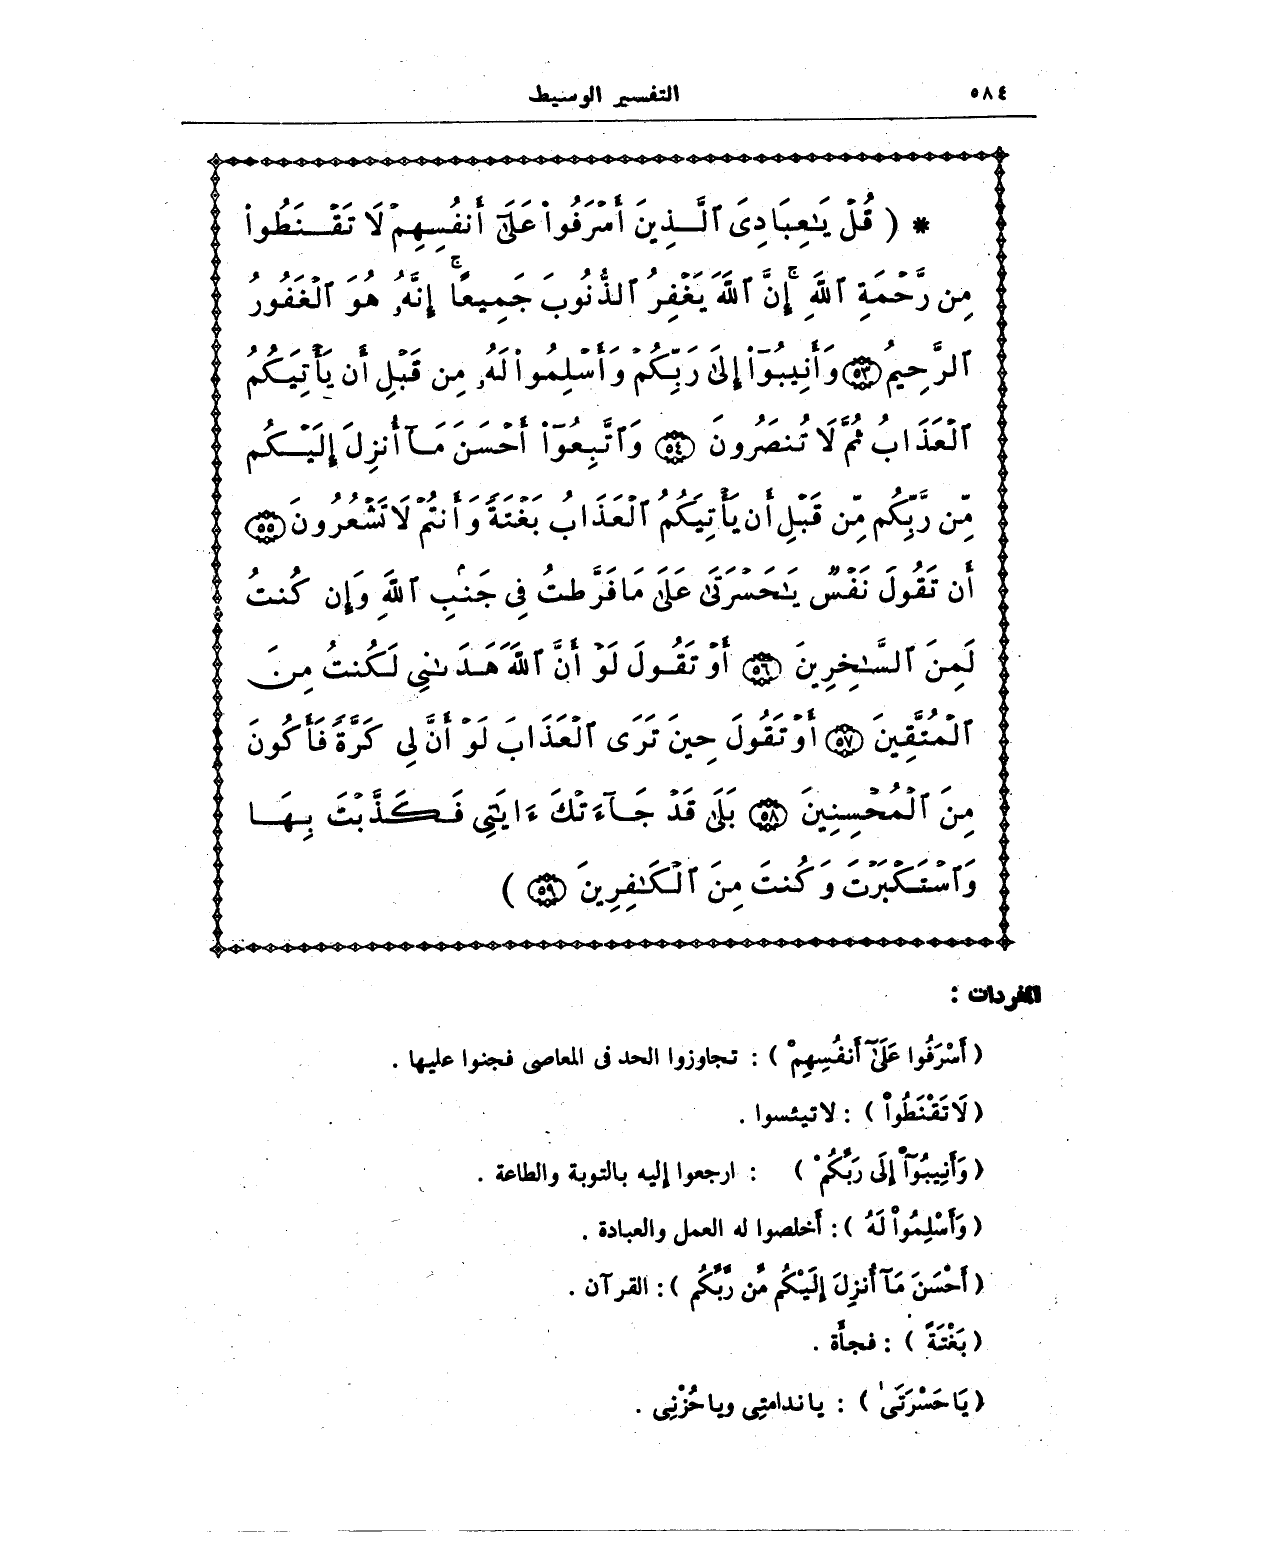 ٥٨٤
التفسير الوسيط
* ( قُلْ يَـٰعِبَادِىَ ٱلَّذِينَ أَسْرَفُوا۟ عَلَىٰٓ أَنفُسِهِمْ لَا تَقْنَطُوا۟
مِن رَّحْمَةِ ٱللَّهِ ۚ إِنَّ ٱللَّهَ يَغْفِرُ ٱلذُّنُوبَ جَمِيعًا ۚ إِنَّهُۥ هُوَ ٱلْغَفُورُ
ٱلرَّحِيمُ ٥٣ وَأَنِيبُوٓا۟ إِلَىٰ رَبِّكُمْ وَأَسْلِمُوا۟ لَهُۥ مِن قَبْلِ أَن يَأْتِيَكُمُ
ٱلْعَذَابُ ثُمَّ لَا تُنصَرُونَ ٥٤ وَٱتَّبِعُوٓا۟ أَحْسَنَ مَآ أُنزِلَ إِلَيْكُم
مِّن رَّبِّكُم مِّن قَبْلِ أَن يَأْتِيَكُمُ ٱلْعَذَابُ بَغْتَةً وَأَنتُمْ لَا تَشْعُرُونَ ٥٥
أَن تَقُولَ نَفْسٌ يَـٰحَسْرَتَىٰ عَلَىٰ مَا فَرَّطتُ فِى جَنۢبِ ٱللَّهِ وَإِن كُنتُ
لَمِنَ ٱلسَّـٰخِرِينَ ٥٦ أَوْ تَقُولَ لَوْ أَنَّ ٱللَّهَ هَدَىٰنِى لَكُنتُ مِنَ
ٱلْمُتَّقِينَ ٥٧ أَوْ تَقُولَ حِينَ تَرَى ٱلْعَذَابَ لَوْ أَنَّ لِى كَرَّةً فَأَكُونَ
مِنَ ٱلْمُحْسِنِينَ ٥٨ بَلَىٰ قَدْ جَآءَتْكَ ءَايَـٰتِى فَكَذَّبْتَ بِهَا
وَٱسْتَكْبَرْتَ وَكُنتَ مِنَ ٱلْكَـٰفِرِينَ ٥٩ )
المفردات :
( أَسْرَفُوا عَلَىٰٓ أَنفُسِهِمْ ) : تجاوزوا الحد فى المعاصى فجنوا عليها .
( لَا تَقْنَطُوا۟ ) : لا تيئسوا .
( وَأَنِيبُوٓا۟ إِلَى رَبِّكُمْ ) : ارجعوا إليه بالتوبة والطاعة .
( وَأَسْلِمُوا۟ لَهُ ) : أخلصوا له العمل والعبادة .
( أَحْسَنَ مَآ أُنزِلَ إِلَيْكُم مِّن رَّبِّكُم ) : القرآن .
( بَغْتَةً ) : فجأة .
( يَا حَسْرَتَىٰ ) : يا ندامتِى ويا حُزْنِى .